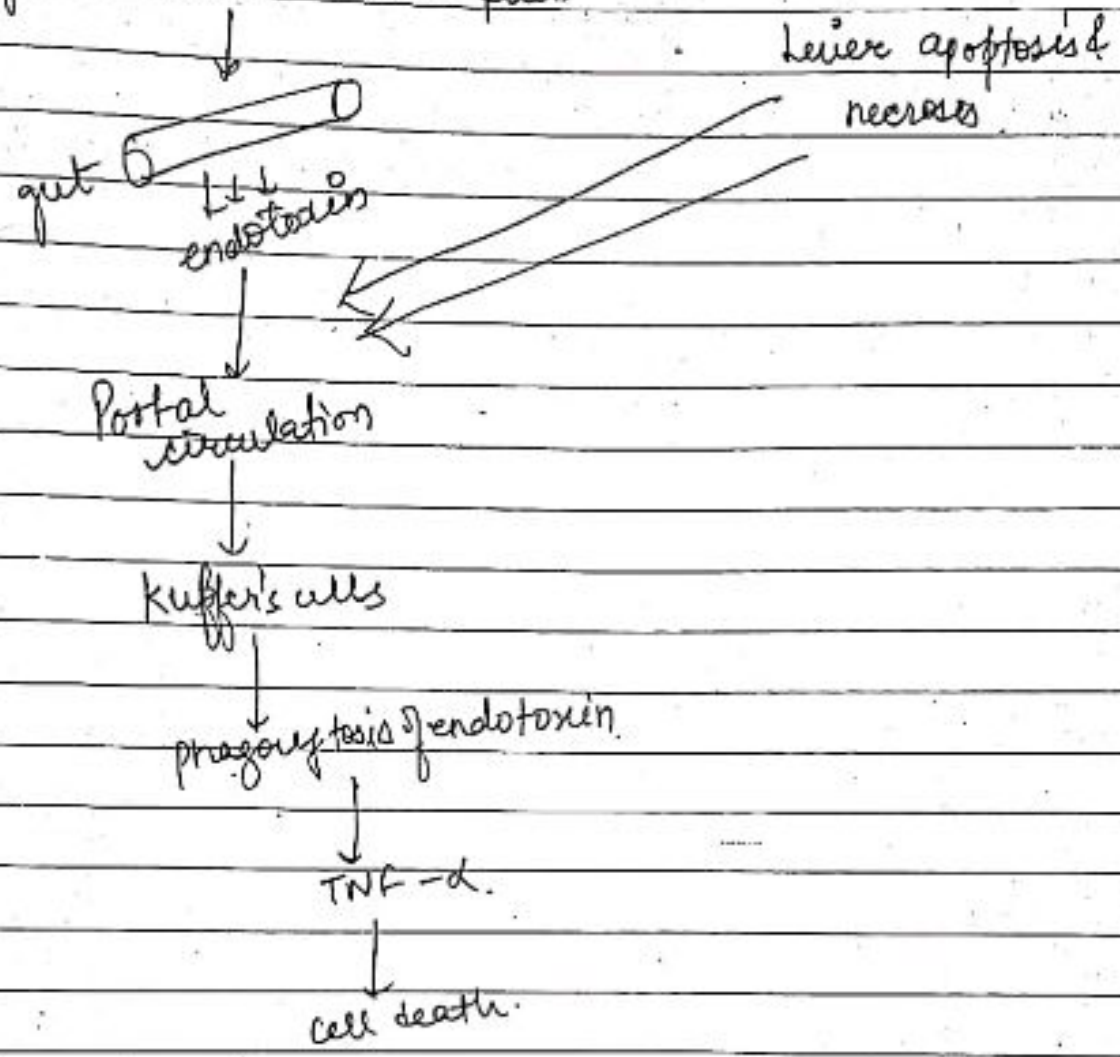 Liver apoptosis &
necroses
gut
endotoxin
Portal
circulation
Kuffer's cells
phagocytosis of endotoxin.
TNF-α.
cell death.